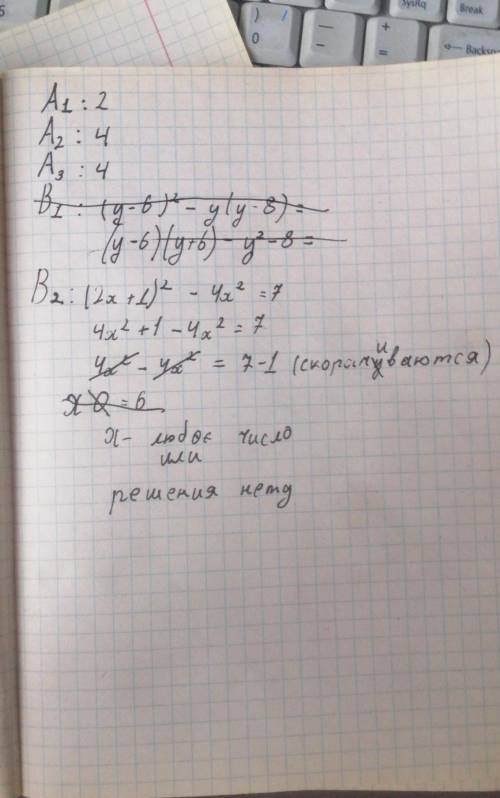 SysRq
Break
Backsp
5
)
0
—
–
+
=
A1 : 2
A2 : 4
A3 : 4
B1 : (y-6)² - y(y-8) =
(y-6)(y+6) - y² - 8 =
B2 : (2x+1)² - 4x² = 7
4x² + 1 - 4x² = 7
4x² - 4x² = 7-1 (скорачиваются)
x 0 = 6
x - любое число
или
решения нету